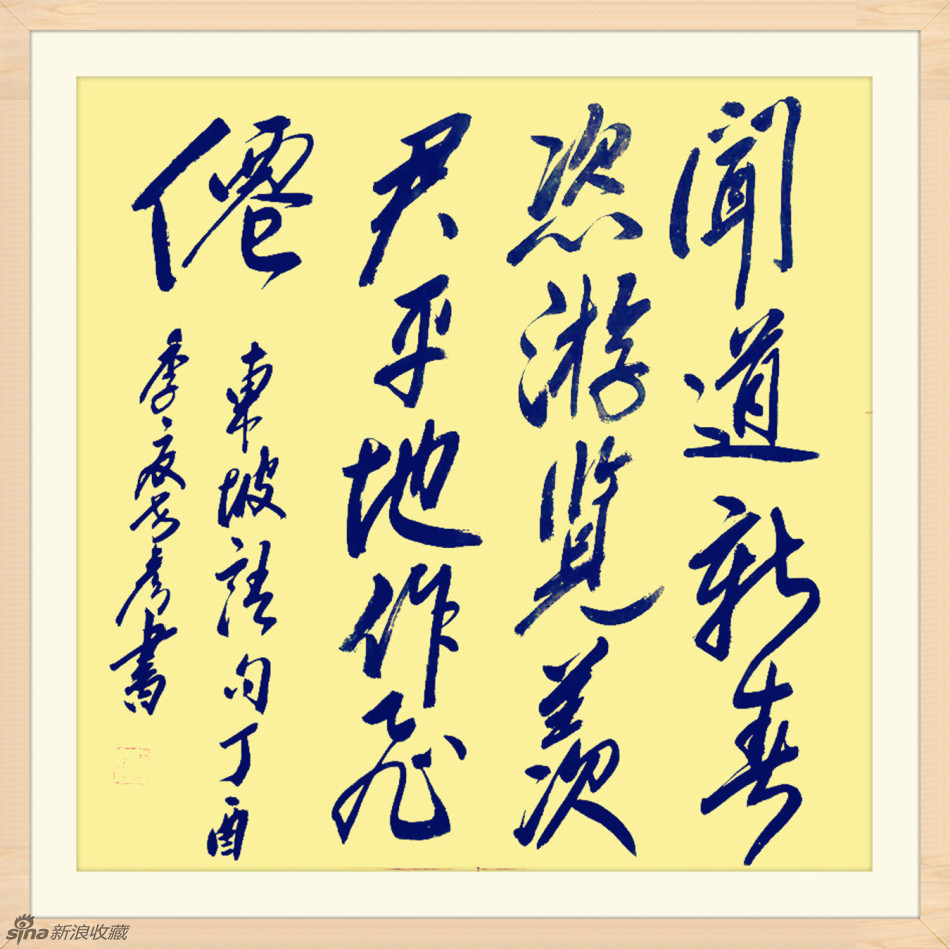 聞道新春
恣游览羡
君平地作飛
僊
東坡詩句丁酉
季夏書
sina新浪收藏